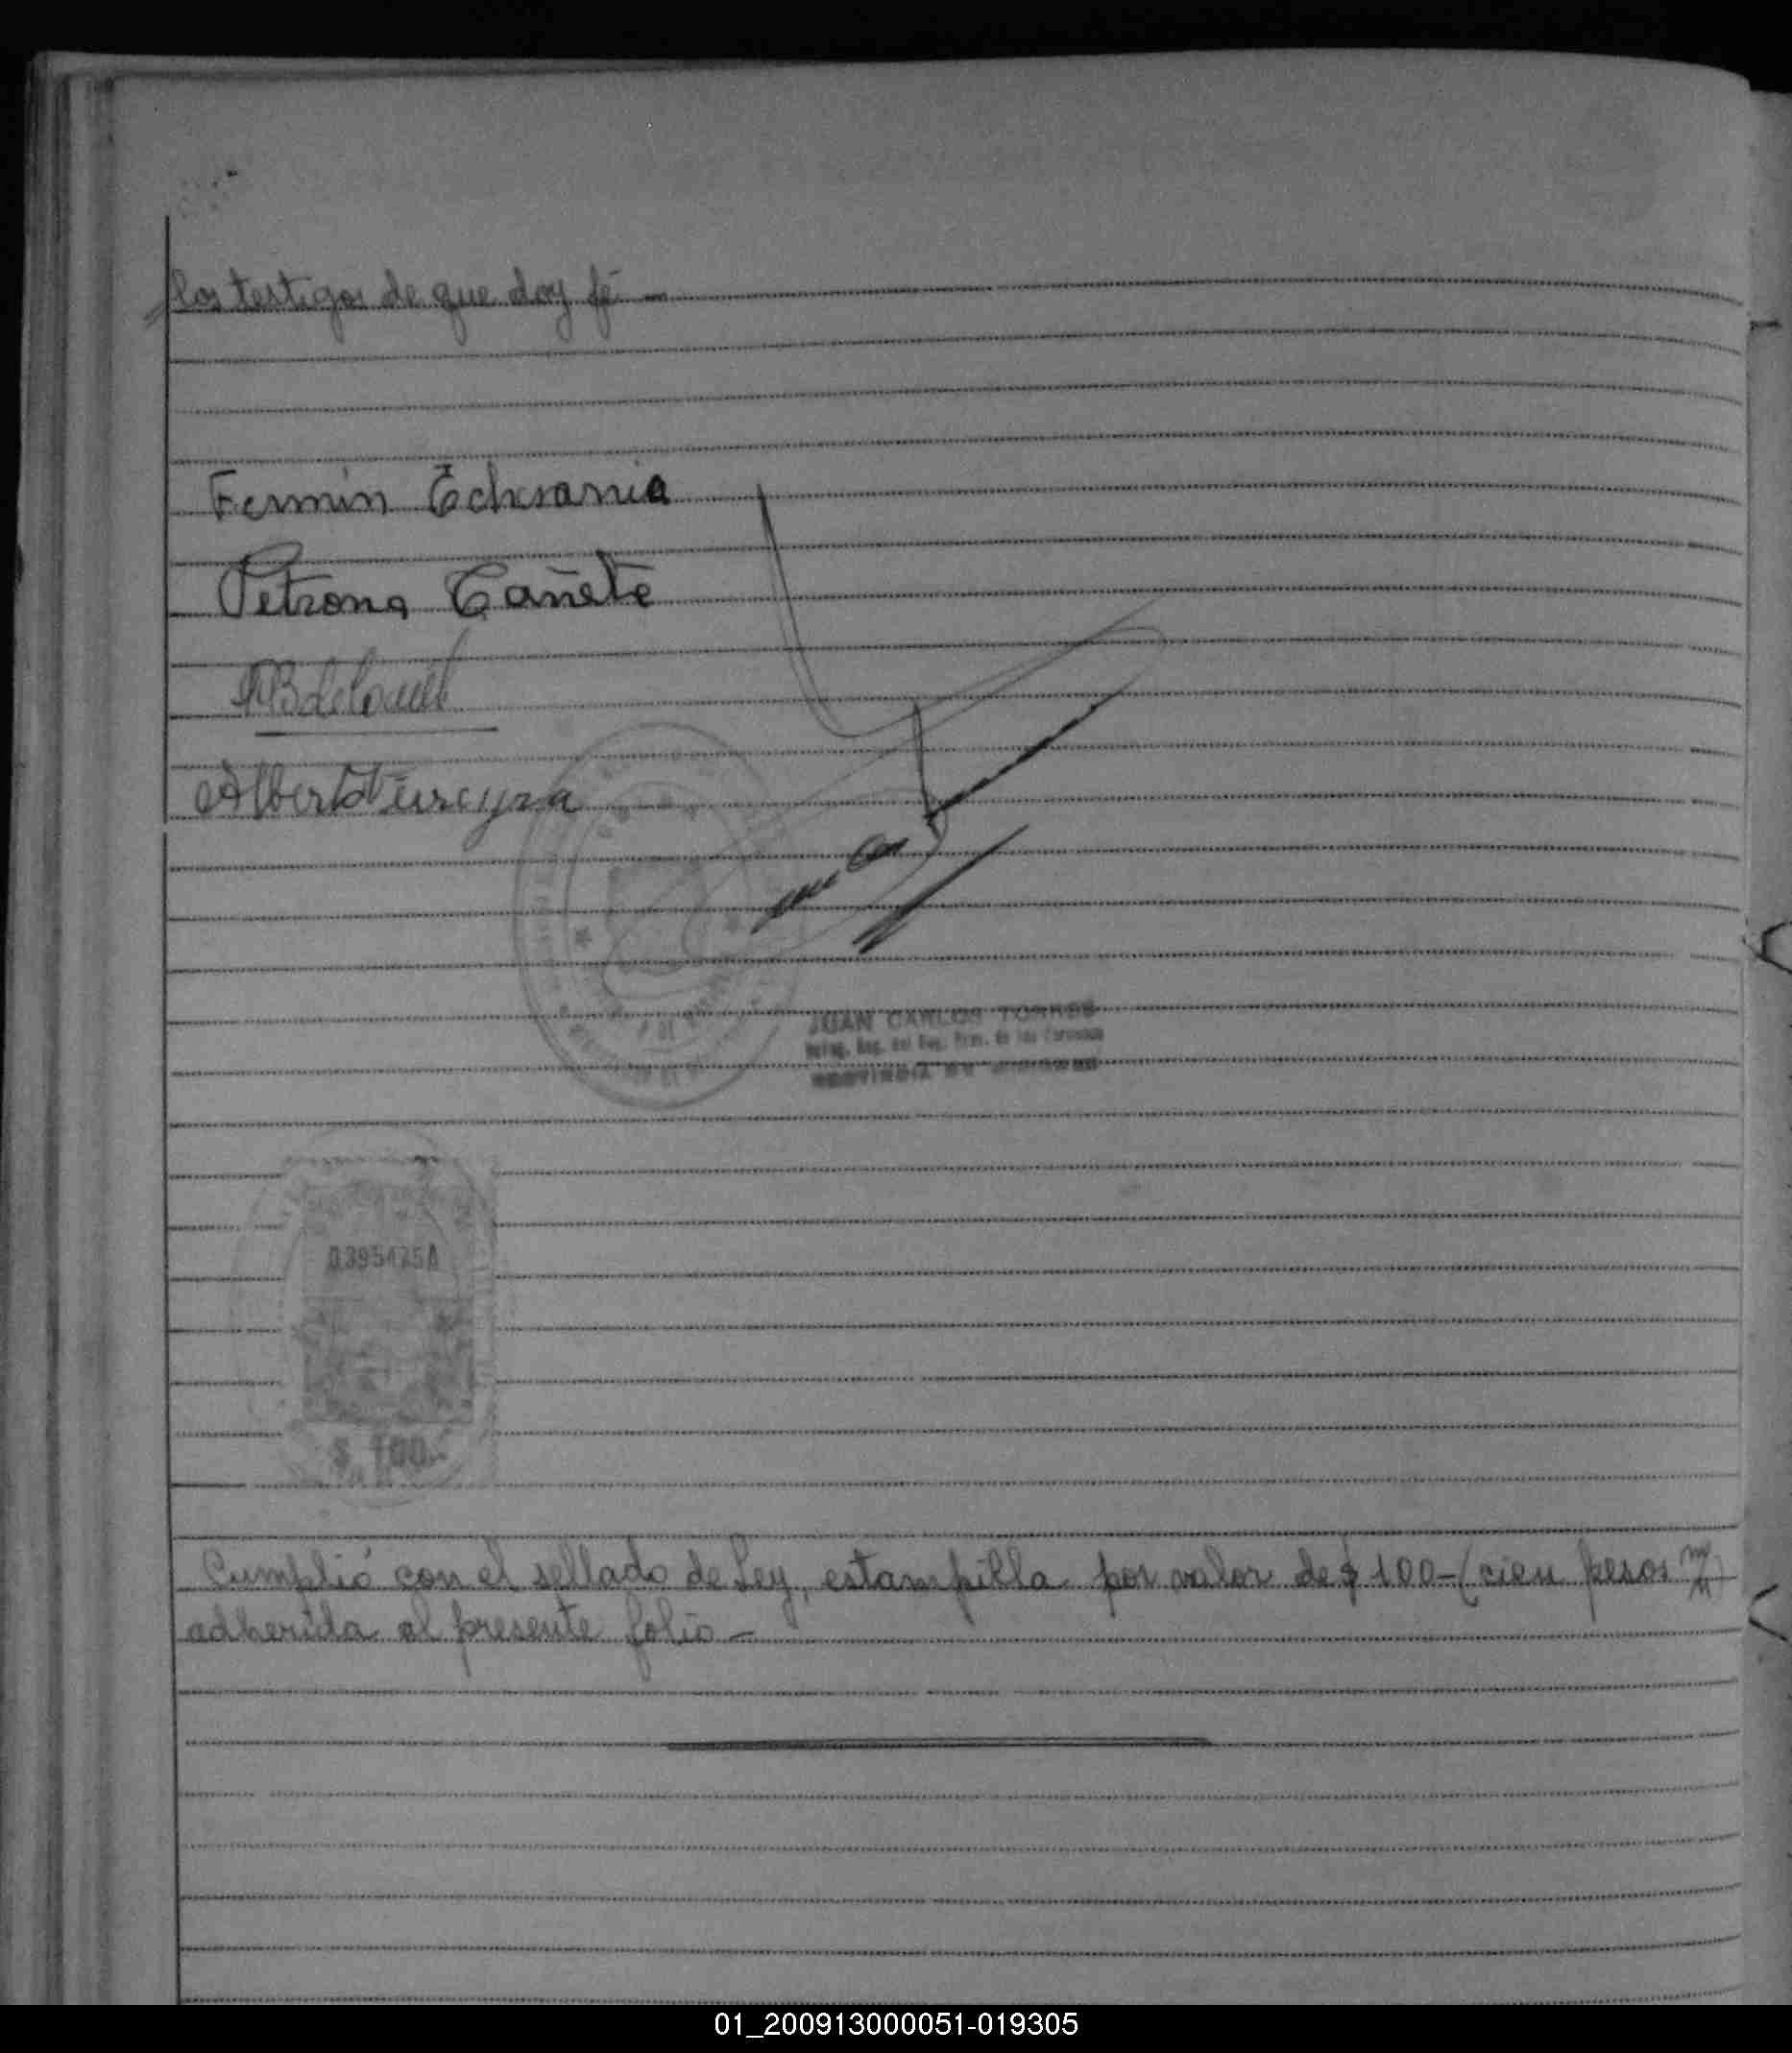 los testigos de que doy fé —
Fermin Echevarria
Petrona Cañete
Alberto Fereyra
JUAN CARLOS TORRES
Reg. Prov. de las Personas
PROVINCIA DE
$ 100.-
Cumplió con el sellado de Ley, estampilla por valor de $ 100 - (cien pesos m/n)
adherida al presente folio —
01_200913000051-019305